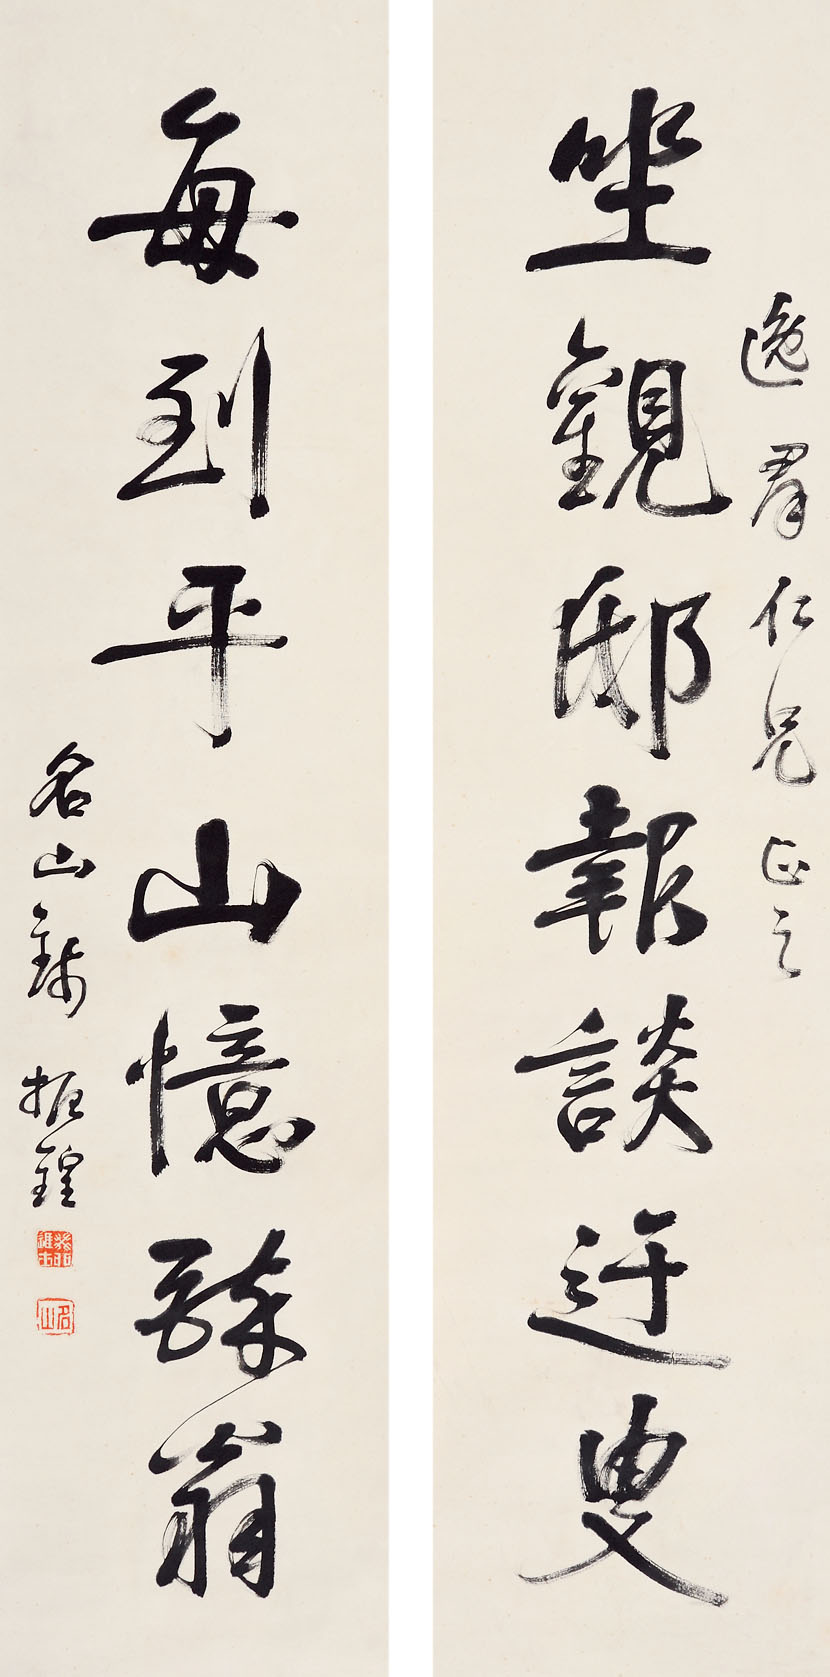 逸羣仁兄正之
坐觀邸報談迂叟
每到平山憶醉翁
名山錢振鍠
名山